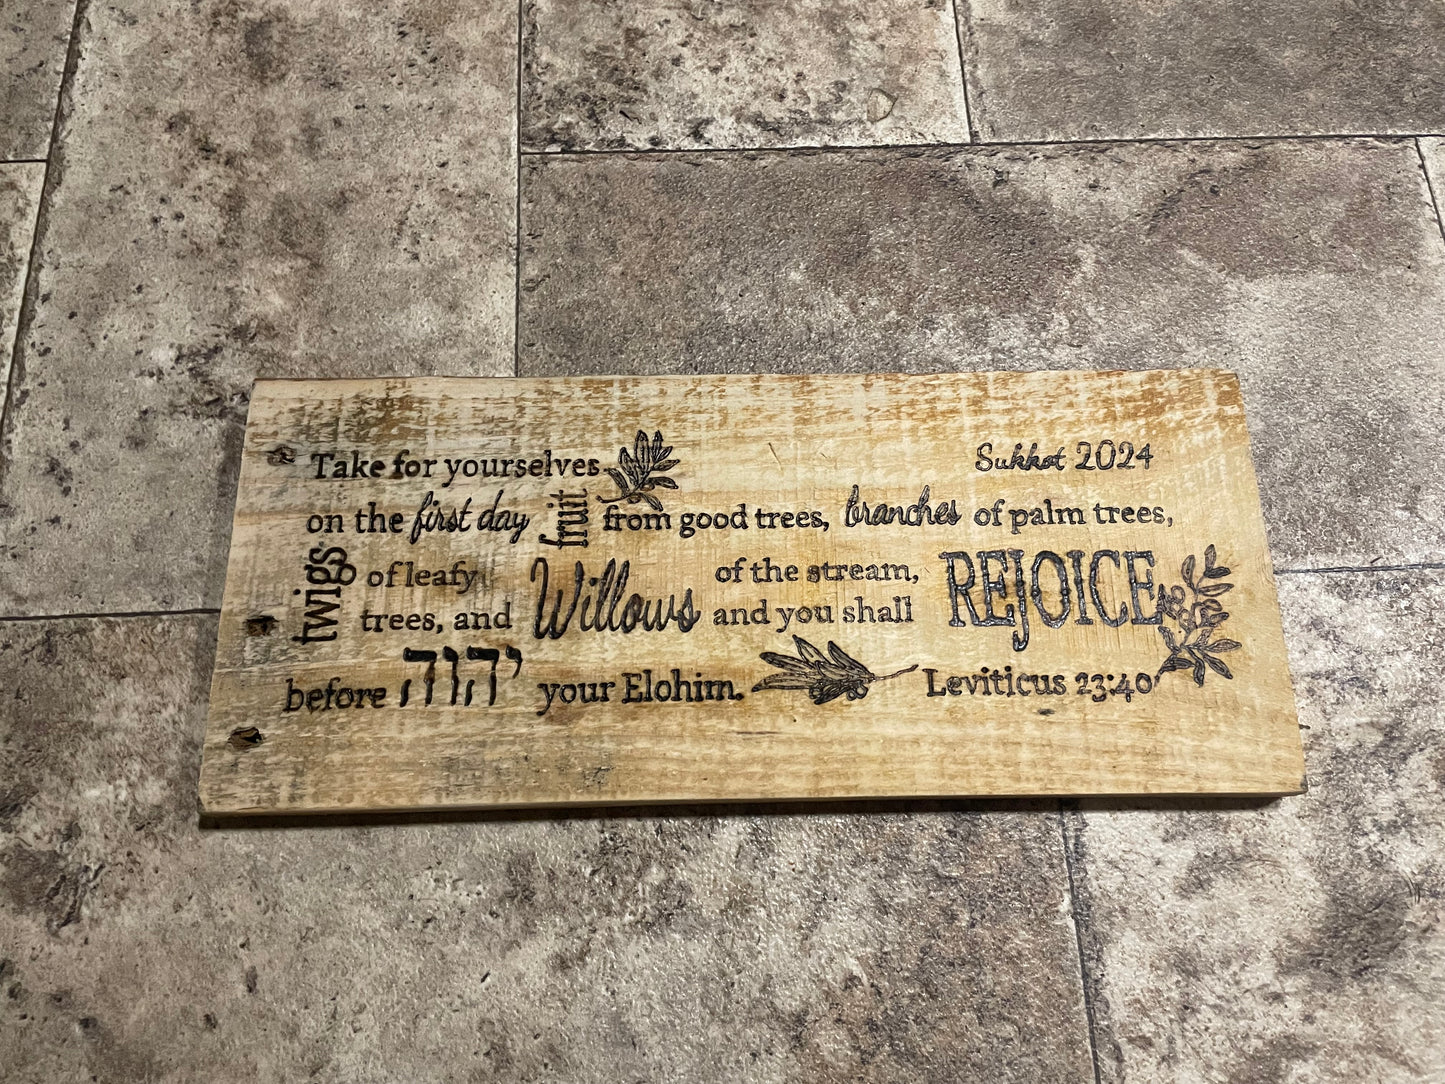 Sukkot 2024
Take for yourselves
on the first day fruit from good trees, branches of palm trees,
twigs of leafy trees, and Willows of the stream, and you shall REJOICE
before יהוה your Elohim.
Leviticus 23:40